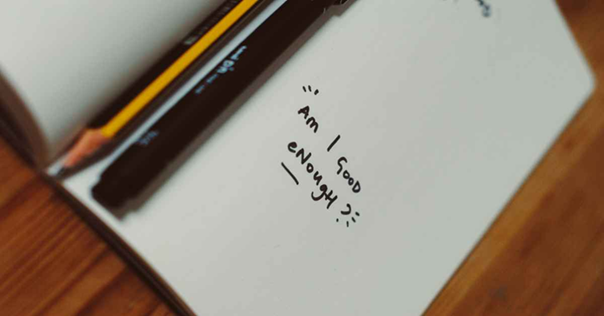 "Am I Good
eNough?"